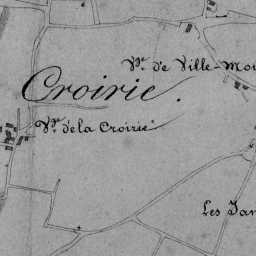 Vge de Ville-Mou
Croirie.
Vge de la Croirie
Les Jan